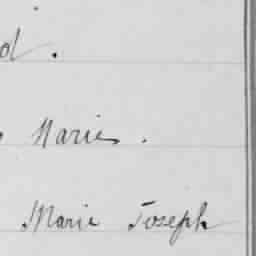 Marie.
Marie Joseph